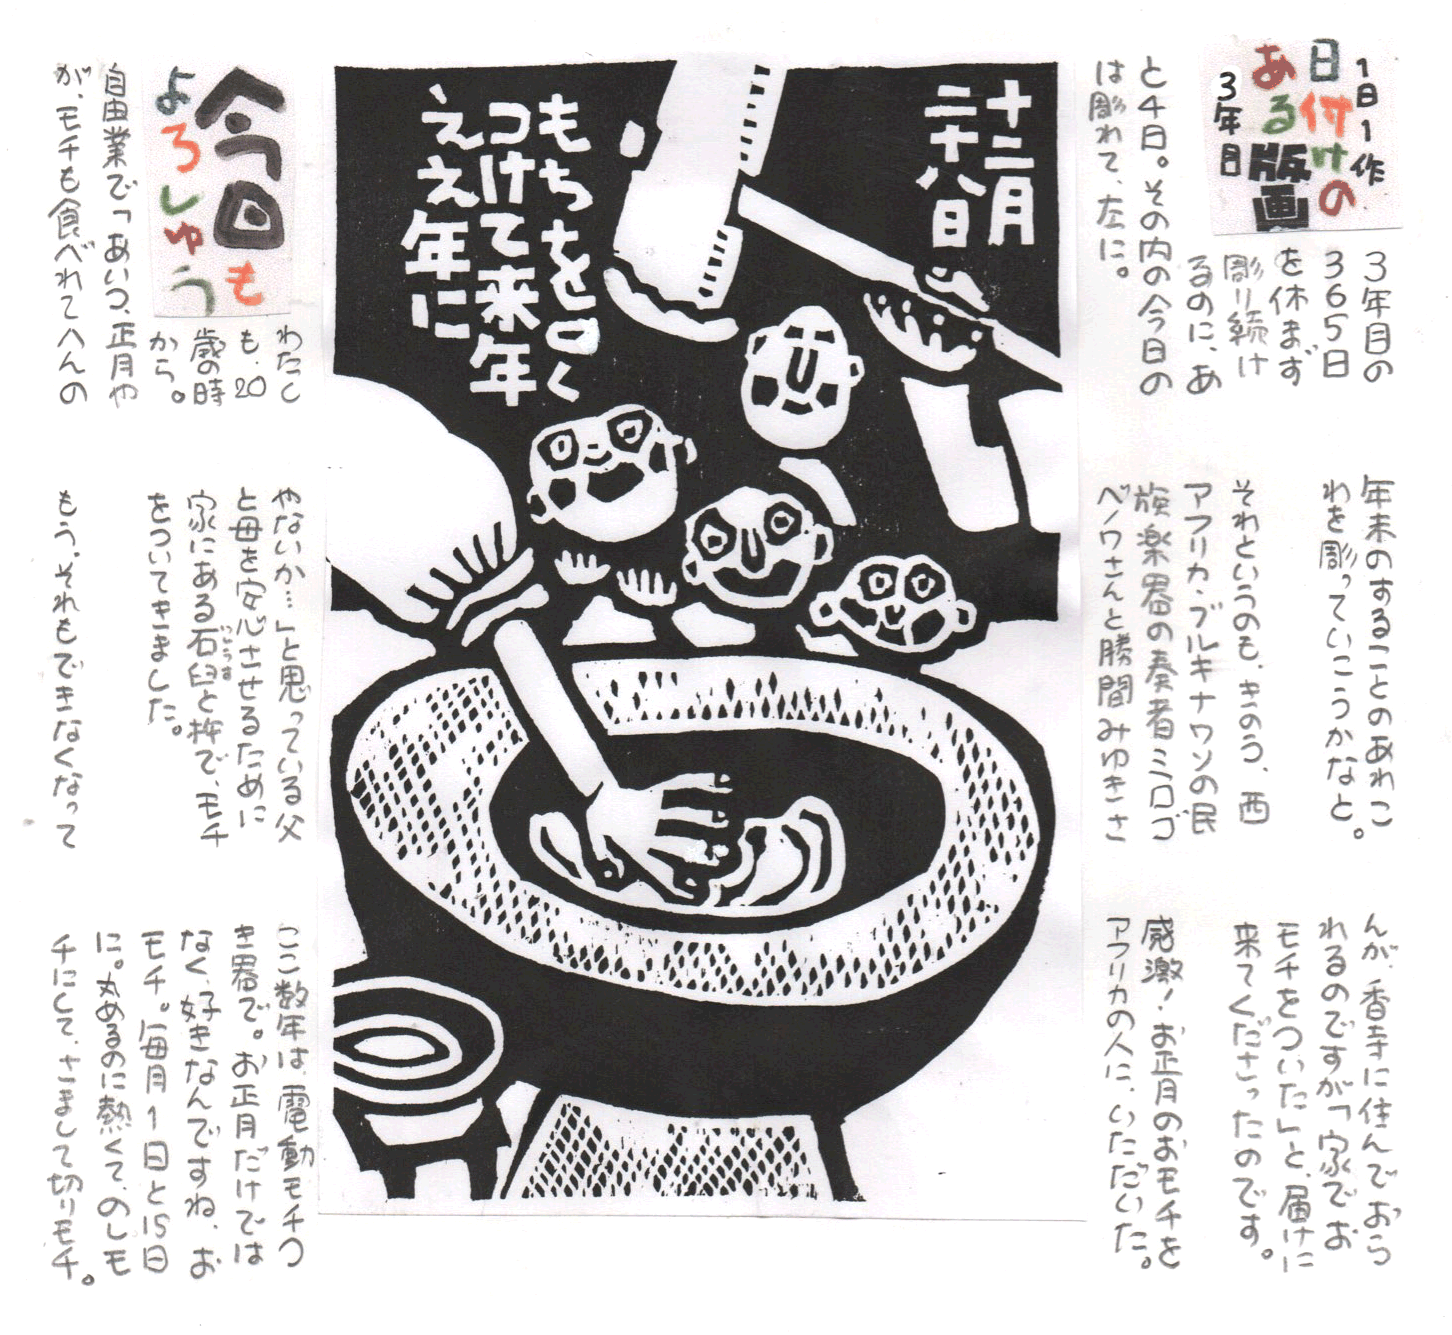 1日1作
日付けの
ある版画
3年目
3年目の
365日
を休まず
彫り続け
るのに、あ
と4日。その内の今日の
は彫れて、左に。
年末のすることのあれこ
れを彫っていこうかなと。
それというのも、きのう、西
アフリカ・ブルキナワソの民
族楽器の奏者ミロゴ
ベノワさんと勝間みゆきさ
んが、香寺に住んでおら
れるのですが「家でお
モチをついた」と、届けに
来てくださったのです。
感激！お正月のおモチを
アフリカの人に、いただいた。
十二月
二十八日
もちを白く
つけて来年
ええ年に
今日も
よろしゅう
わたし
も、20
歳の時
から。
自由業で「あいつ、正月や
が、モチも食べれてへんの
やないか…」と思っている父
と母を安心させるために
いしうす
家にある石臼と杵で、モチ
をついてきました。
もう。それもできなくなって
ここ数年は、電動モチつ
き器で。お正月だけでは
なく、好きなんですね、お
モチ。毎月1日と15日
に。丸めるのに熱くて、のしモ
チにして、さまして切りモチ。